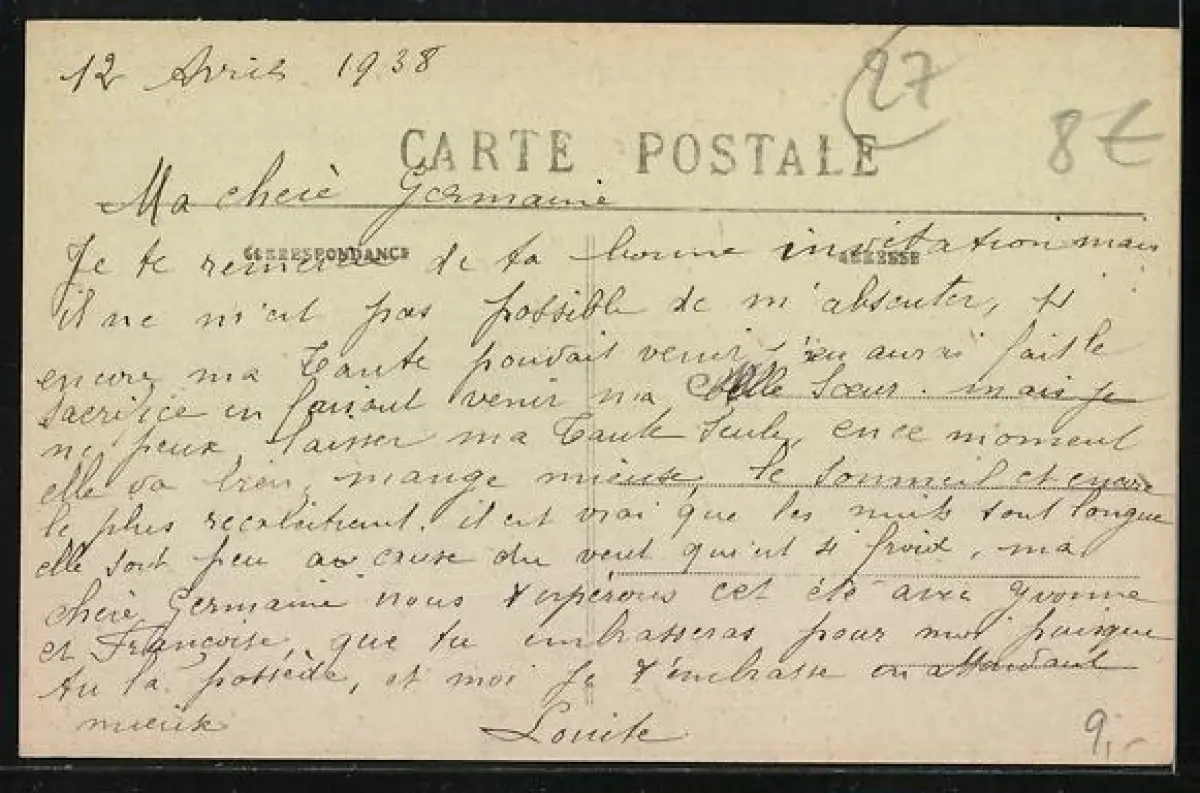 12 Avril 1938
27
8€
CARTE POSTALE
Ma cherè Germaine
CORRESPONDANCE
ADRESSE
Je te remercie de ta bonne invitation mais
il ne m'est pas possible de m'absenter, si
encore ma Tante pouvait venir j'en aurai fait le
sacrifice en faisant venir ma Belle Sœur. mais je
ne peux laisser ma Tante Seule, en ce moment
elle va bien, mange mieux, le sommeil est encore
le plus recalcitrant. il est vrai que les nuits sont longue
elle sort peu a cause du vent qu'est si froid, ma
cherè Germaine nous t'espérons cet été avec Yvonne
et Françoise, que tu embrasseras pour moi puisque
tu la possède, et moi je t'embrasse en attendant
mieux
Louite
9,-